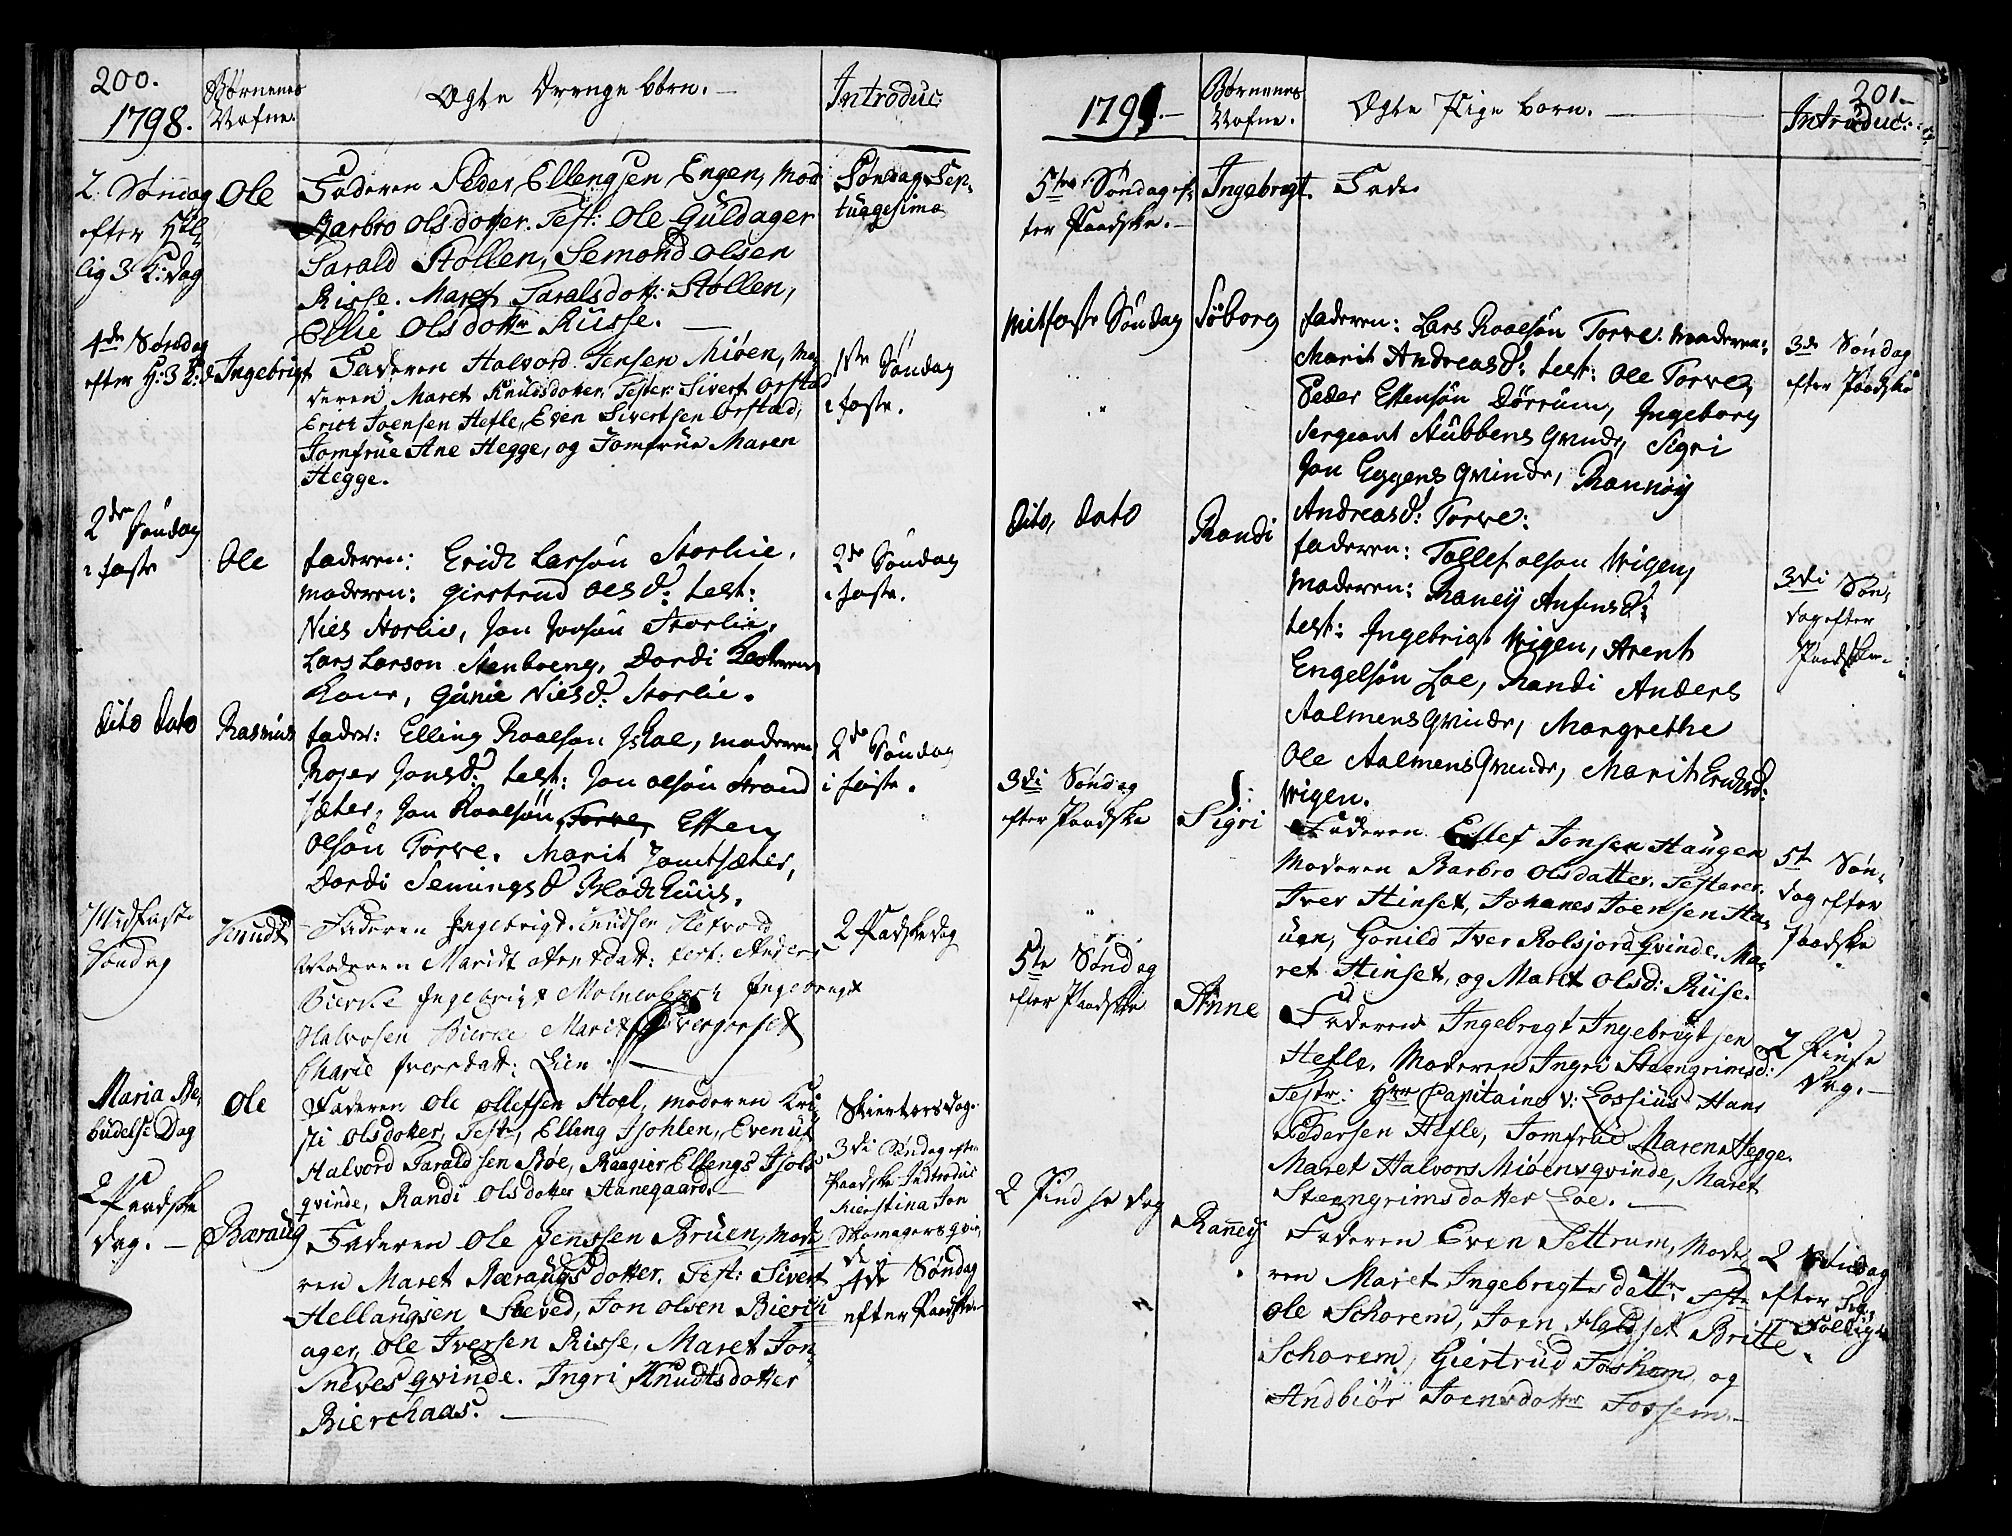 200.
1798.
Børnenes
Nafne.
Ægte Drenge børn. —
Introduc:
2. Søndag
efter Hel-
lig 3 K: Dag
Ole
Faderen Peder Ellengsen Engen, Mod
Barbro Olsdotter. Test: Ole Guldager
Tarald Stollen, Semond Olsen
Risse. Maret Taralsdott: Stollen,
Ellie Olsdottr Risse. —
Søndag Sep-
tuagesima
4de Søndag
efter H: 3 K: D
Ingebrigt
Faderen Halvord Jensen Miøen, Mo-
deren Maret Knudsdotter Tester: Sivert Orstad
Erich Joensen Hefle, Even Sivertsen Orstad,
Jomfrue Ane Hegge, og Jomfrue Maren
Hegge.
1ste Søndag
i faste.
2den Søndag
i faste
Ole
faderen: Erich Larsøn Storlie,
moderen: Giertrud Olsd: test:
Niels Storlie, Jon Jonsøn Storlie,
Lars Larson Stenboeng, Dordi
Kone, Gunie Nielsd: Storlie.
2de Søndag
i faste.
Dito Dato
Rasmus
fader: Elling Roalson Iskal, moderen
Roser Jonsd: test: Jon Olsøn Strand
sæter, Jon Roalsøn Torve, Esten
Olsøn Torve. Marit Jamtsæter,
Dordi Semingsd Blochhuus.
2de Søndag
i faste.
Midfaste
Søndag
Knudt
Faderen Ingebrigt Knudsen Hevold
Moderen Maridt Arentdatt: test: Anders
Bierke Ingebrigt Ingebrigt
Halvorsen Bierke Marit
Marie Iversdatt: Lien. —
2 Paaskedag
Maria Be-
budelse Dag
Ole
Faderen Ole Ollefsen Hoel, moderen Kri-
sti Olsdotter, Testr, Elling Isohlen, Even
Halvord Taraldsen Bøe, Raagier Ellengs Isols
qvinde, Randi Olsdotter Aanegaard. —
Skiertorsdag.
3di Søndag efter
Paaske Introduc
Kierstina Jon
Skomagers qvin-
de
2 Paaske
Dag. —
Bæraug
Faderen Ole Jenssen Bruen, Mode
ren Maret Bæraugsdotter. Test: Sivert
Hellangsen Sneved, Jon Olsen Bierch
ager, Ole Iversen Risse, Maret Jon
Sneves qvinde. Ingri Knudtsdotter
Bierchaas. —
4de Søndag
efter Paaske
1799. —
Børnenes
Nafne.
Ægte Pige børn. —
201. —
Introduc:
5te Søndag ef-
ter Paaske. —
Ingebregt.
Fader
Mitfaste Søndag
Søborg
faderen: Lars Roalsøn Torve. moderen:
Marit Andreasd: test: Ole Torve,
Peder Estensøn Dørrum, Ingeborg
Sergeant Stubbens Qvinde, Sigri
Jon Eggens Qvinde, Rannøy
Andreasd: Torve:
3de Søndag
efter Paaske
Dito, Dato
Randi
faderen: Tollef Olson Wigen,
moderen: Raney Anfinsd:
test: Ingebrigt Wigen, Arent
Engelsøn Loe, Randi Anders
Aalmens Qvinde, Margrethe
Ole Aalmens Qvinde, Marit Erichsd:
Wigen.
3di Søn-
dag efter
Paaske.
3di Søndag
efter Paaske
Sigri
Faderen Ellef Jonsen Haugen
Moderen Barbro Olsdatter. Testerer.
Iver Hinset, Johanes Joensen Ha-
uen, Gonild Iver Rolsjord Qvinde. Ma-
ret Hinset, og Maret Olsd: Riise.
5te Søn-
dag efter
Paaske
5te Søndag
efter Paaske
Anne
Faderen Ingebregt Ingebregtsen
Hefle. Moderen Ingri Steengrimsd:
Testr: Hrr Capitaine v: Lossius Hans
Pedersen Hefle, Jomfrue Maren Hegge.
Maret Halvors Miøens qvinde, Maret
Steengrimsdotter Loe. —
2 Pinse
Dag. —
2 Pindse Dag
Raney
Faderen Even Settrum, Mode
ren Maret Ingebregtsdottr
Ole Schorem, Joen Haldset Britte
Schorem, Giertrud Foshem, og
Andbiør Joensdottr Fossem. —
2 Søndag
efter